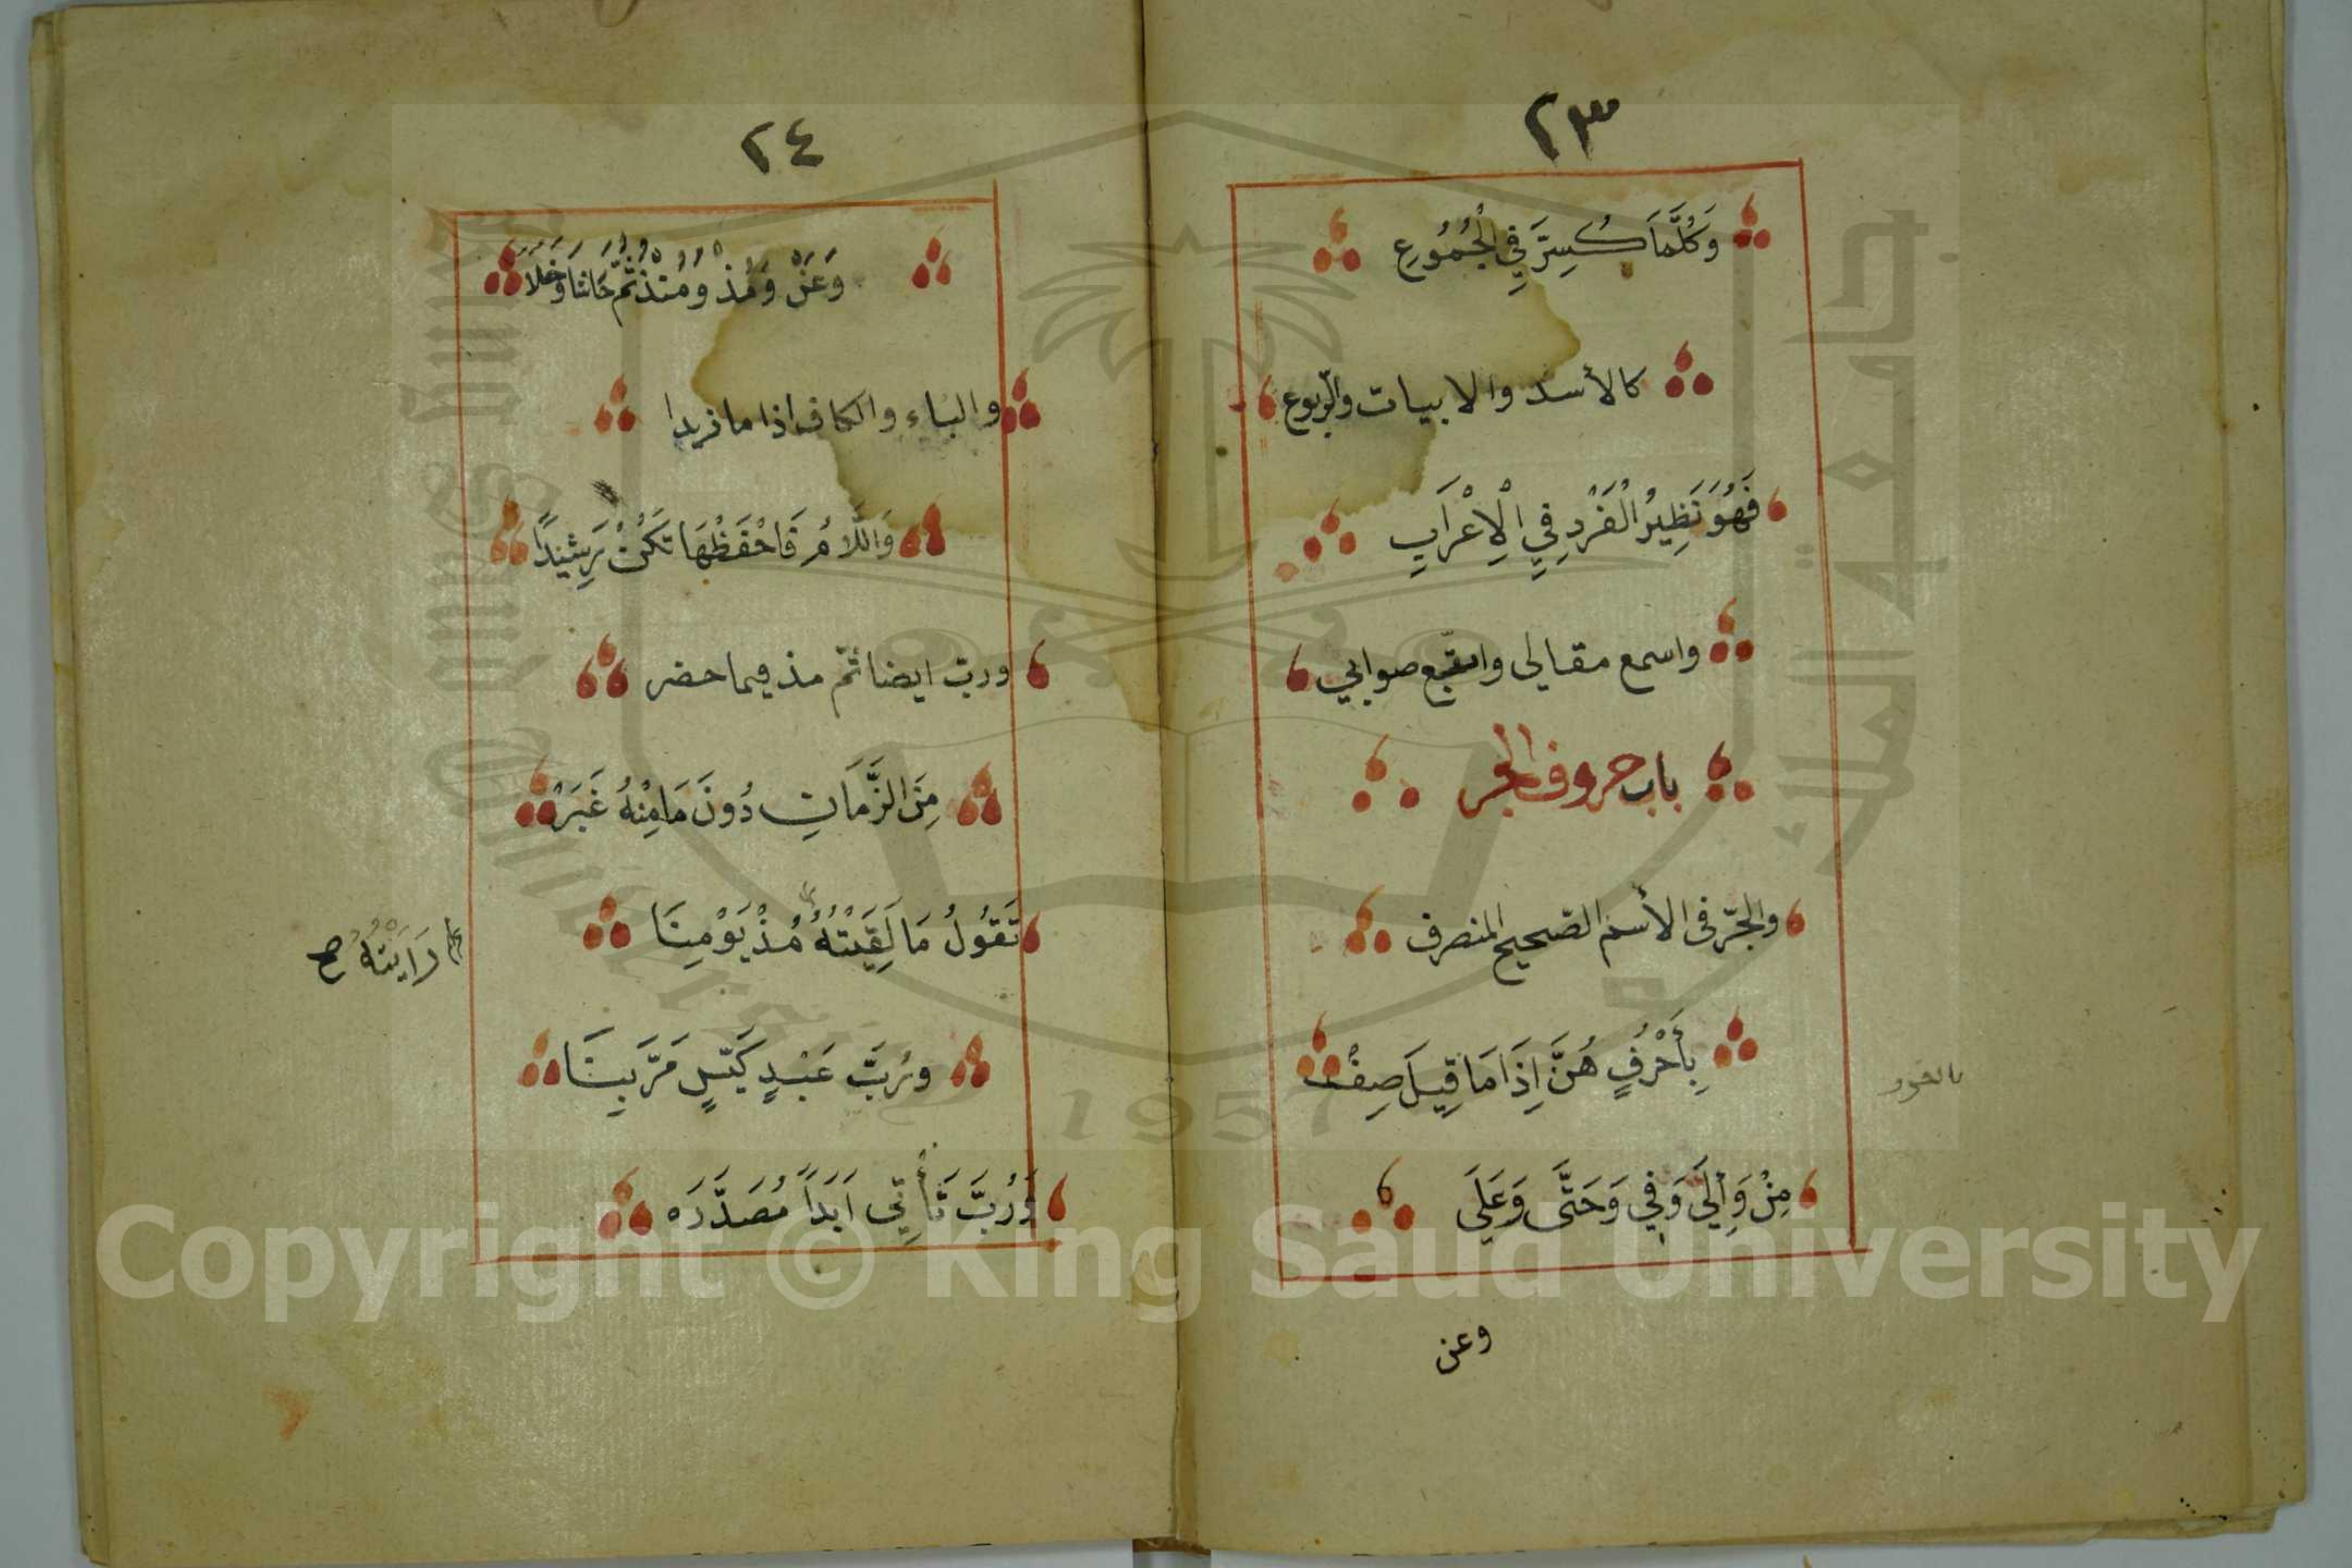 ٢٣
وَكُلَّمَا كُسِّرَ فِي الْجُمُوعِ
كالأسد والابيات والربوع
فَهُوَ نَظِيرُ الْفَرْدِ فِي الْاِعْرَابِ
واسمع مقالى واتبع صوابي
باب حروف الجر
والجرّ فى الأسم الصّحيح المنصرف
بِأَحْرُفٍ هُنَّ اِذَا مَا قِيلَ صِفْ
مِنْ وَاِلَى وَفِي وَحَتَّى وَعَلَى
وعن
٢٤
وَعَنْ وَمُذْ وَمُنْذُ ثُمَّ حَاشَا وَخَلَا
والباء والكاف اذا ما زيدا
وَاللَّامُ فَاحْفَظْهَا تَكُنْ رَشِيدًا
وربّ ايضا ثمّ مذ فيما حضر
مِنَ الزَّمَانِ دُونَ مَا مِنْهُ غَبَرْ
تَقُولُ مَا لَقِيَتْهُ مُذْ يَوْمِنَا
رَاَيْتُهُ صح
وَرُبَّ عَبْدٍ كَيِّسٍ مَرَّ بِنَا
وَرُبَّ تَأْتِي اَبَدًا مُصَدَّرَه
جامعة الملك سعود
King Saud University
1957
Copyright © King Saud University